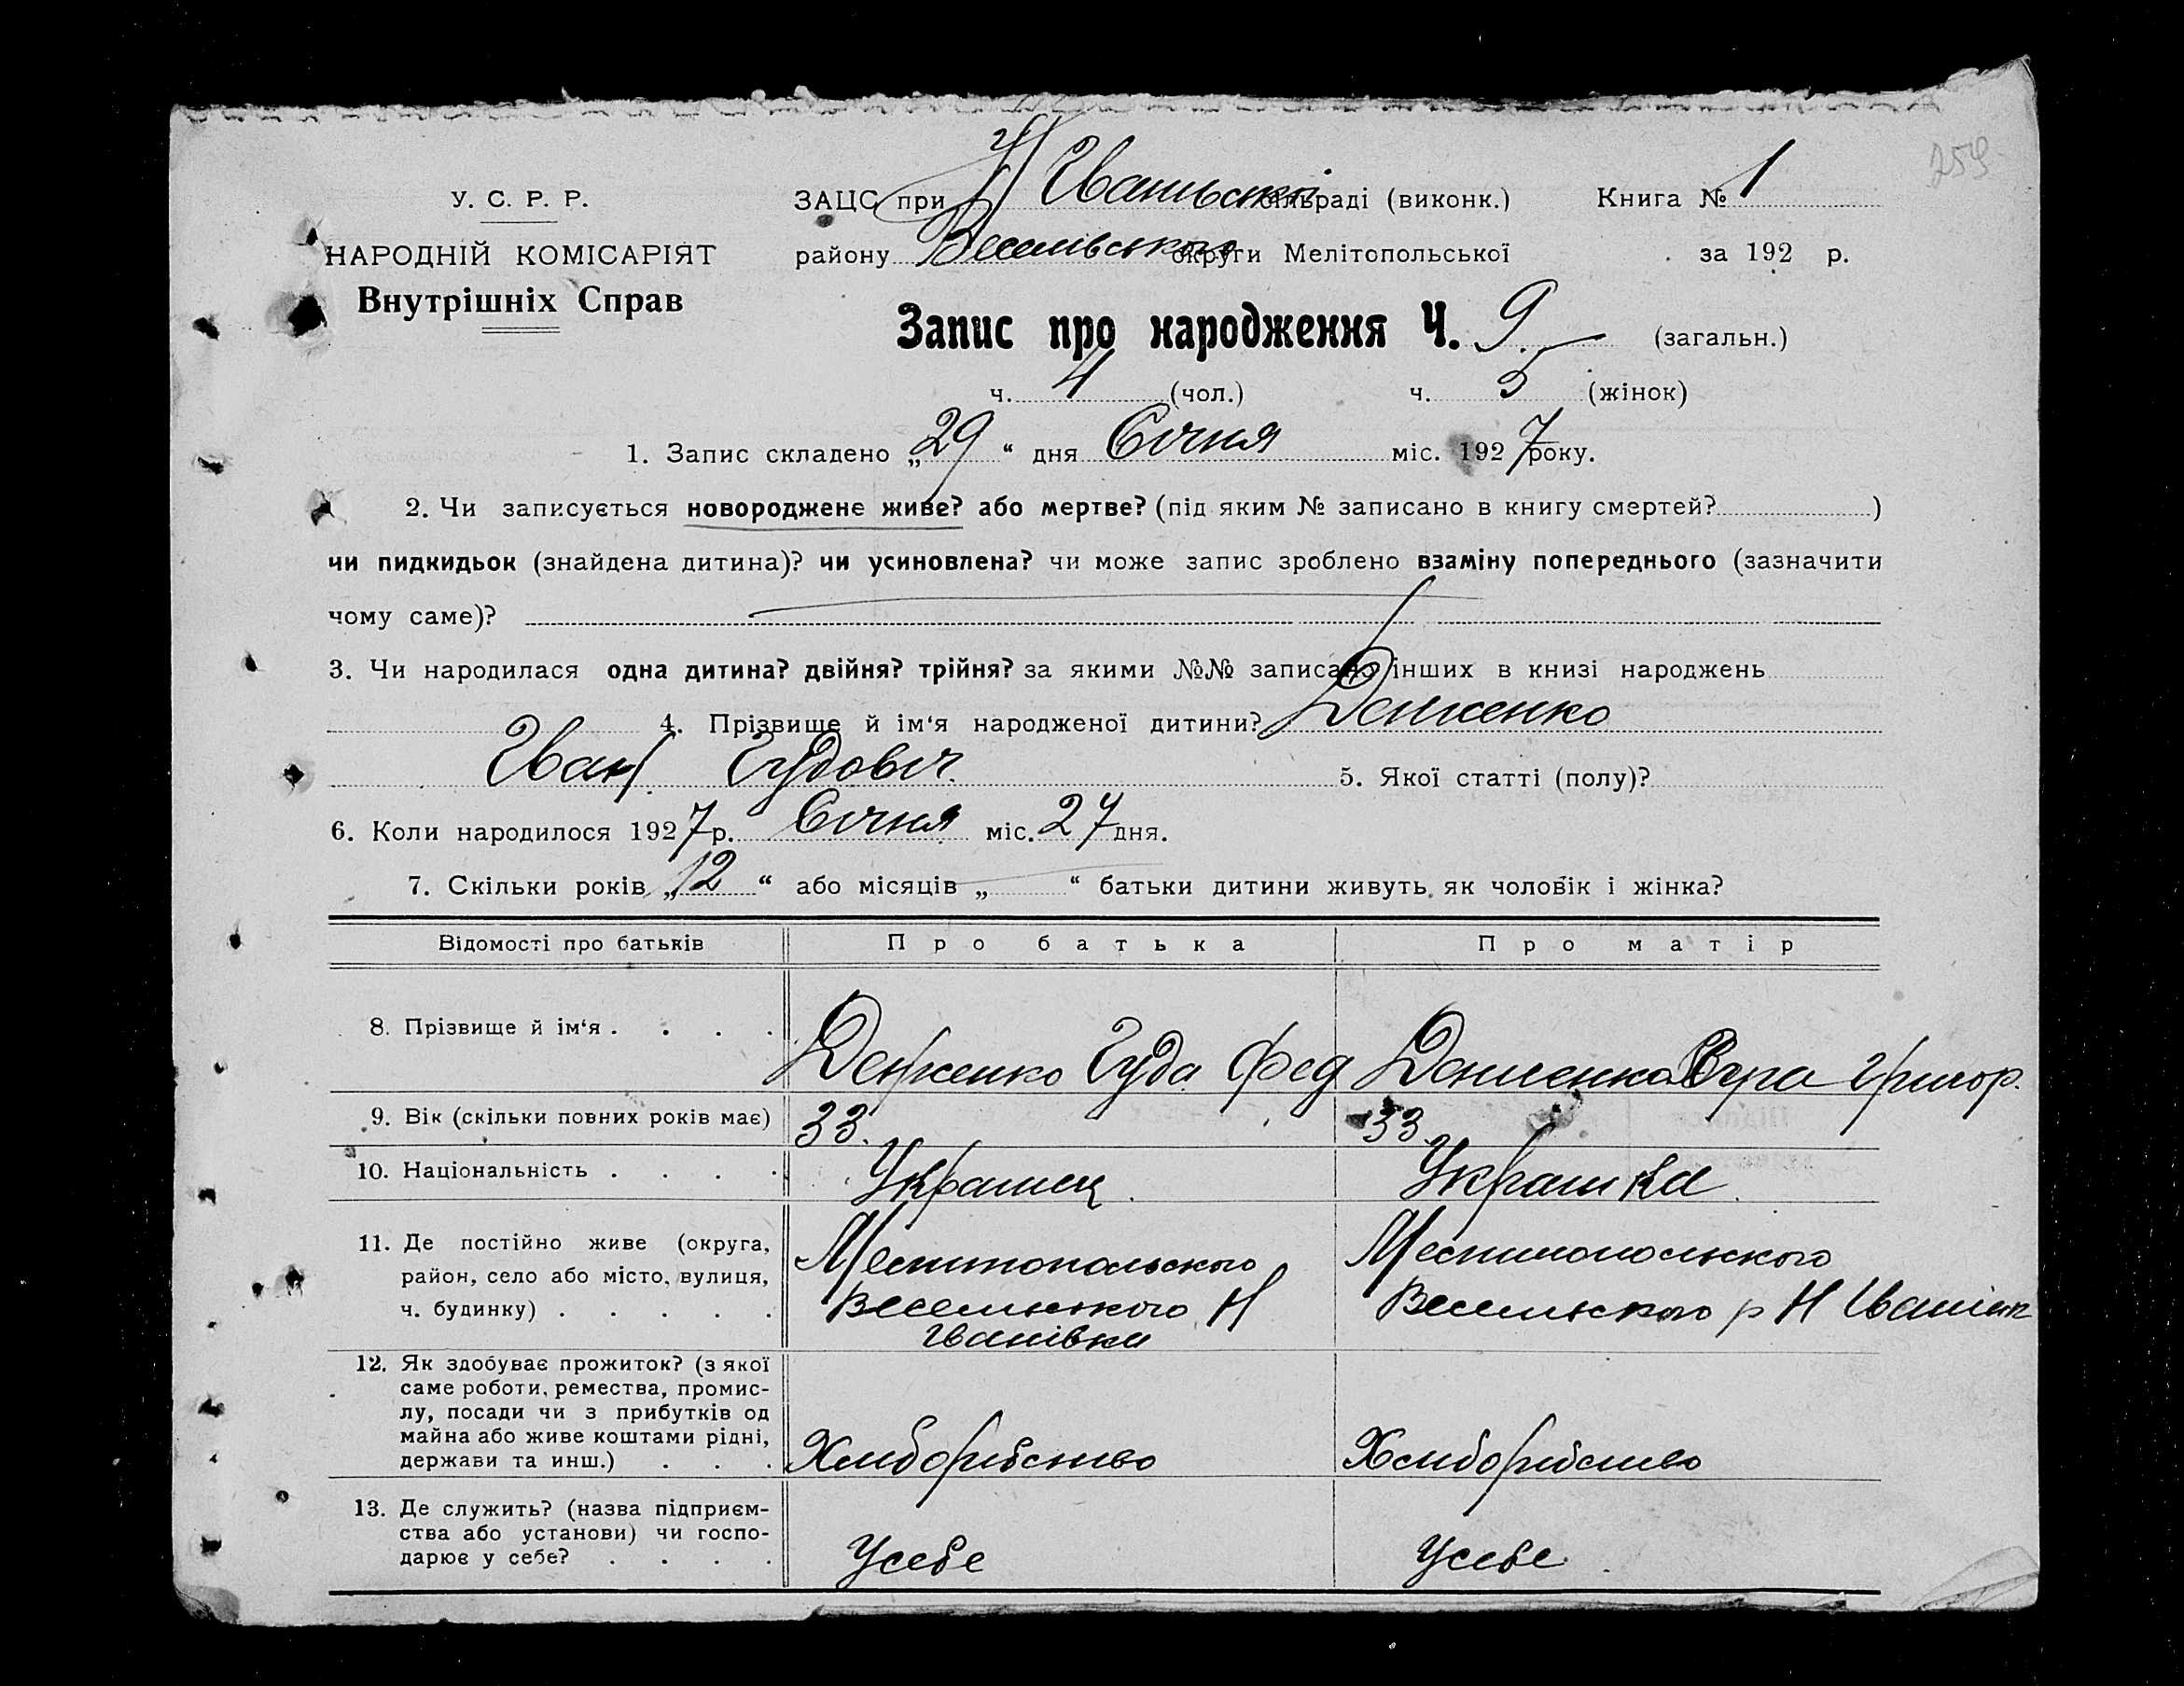 259
У. С. Р. Р.
НАРОДНІЙ КОМІСАРІЯТ
Внутрішніх Справ
ЗАЦС при Н Іванівській сільраді (виконк.) Книга № 1
району Весельського округи Мелітопольської за 192 р.
Запис про народження Ч. 9. (загальн.)
ч. 4 (чол.) ч. 5 (жінок)
1. Запис складено „29“ дня Січня міс. 1927 року.
2. Чи записується новороджене живе? або мертве? (під яким № записано в книгу смертей? )
чи пидкидьок (знайдена дитина)? чи усиновлена? чи може запис зроблено взаміну попереднього (зазначити
чому саме)?
3. Чи народилася одна дитина? двійня? трійня? за якими №№ записано інших в книзі народжень
4. Прізвище й ім‘я народженої дитини?
Іван Іудовіч. 5. Якої статті (полу)?
6. Коли народилося 1927 р. Січня міс. 27 дня.
7. Скільки років „12“ або місяців „ “ батьки дитини живуть як чоловік і жінка?
Відомості про батьків Про батька Про матір
8. Прізвище й ім‘я . . . . Іуда Фед Вера Григор.
9. Вік (скільки повних років має) 33. 33.
10. Національність . . . . Украінец. Украінка.
11. Де постійно живе (округа, район, село або місто, вулиця, ч. будинку) . . . . .
Мелитопольского Мелитопольского
Весельского Н Весельского р Н
Іванівка
12. Як здобуває прожиток? (з якої саме роботи, ремества, промис-
лу, посади чи з прибутків од
майна або живе коштами рідні,
держави та инш.) . . . Хліборобство Хліборобство
13. Де служить? (назва підприєм-
ства або установи) чи госпо-
дарює у себе? . . . . Усебе Усебе.